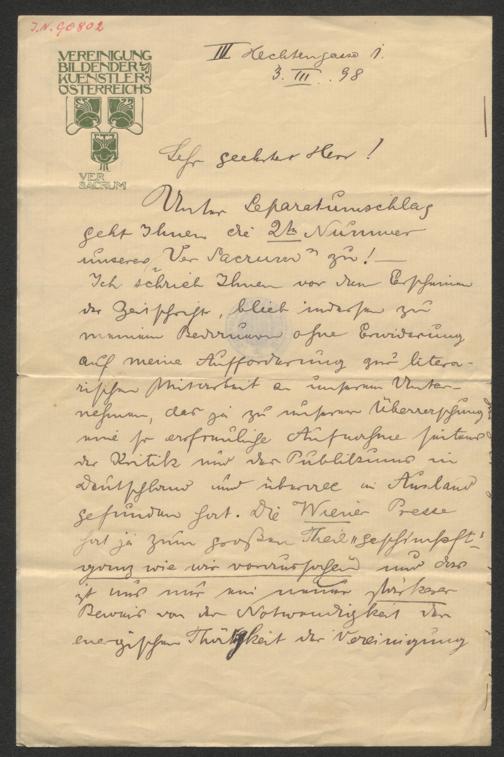 J.N. 90802
VEREINIGUNG
BILDENDER
KUENSTLER
OESTERREICHS
VER
SACRUM
III Hechtengasse 1.
3. III. 98
Sehr geehrter Herr!
Unter Separatumschlag
geht Ihnen die 2te Nummer
unseres „Ver Sacrum" zu! —
Ich schrieb Ihnen vor dem Erscheinen
der Zeitschrift, blieb indessen zu
meinem Bedauern ohne Erwiderung
auf meine Aufforderung zur litera-
rischen Mitarbeit an unserem Unter-
nehmen, das ja zu unserer Überraschung
eine so erfreuliche Aufnahme seitens
der Kritik und des Publikums in
Deutschland und überall im Ausland
gefunden hat. Die Wiener Presse
hat ja zum großen Theil „geschimpft"
ganz wie wir voraussahen und das
ist uns nur ein neuer stärkerer
Beweis von der Notwendigkeit der
energischen Thätigkeit der Vereinigung